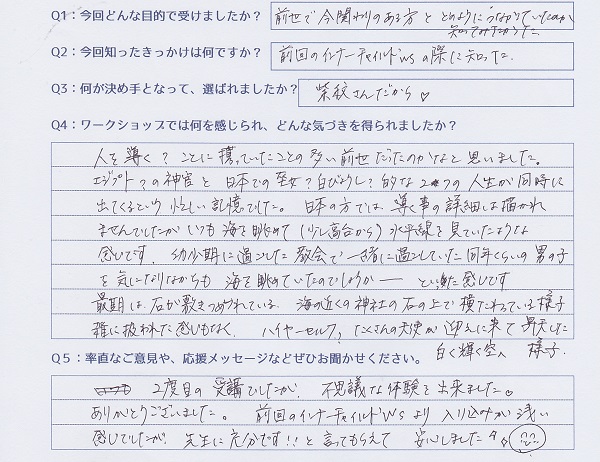 Q1：今回どんな目的で受けましたか？
前世で今関わりのある方とどのようにつながっていたのか
知ってみたかった
Q2：今回知ったきっかけは何ですか？
前回のインナーチャイルドWSの際に知った
Q3：何が決め手となって、選ばれましたか？
紫紋さんだから♡
Q4：ワークショップでは何を感じられ、どんな気づきを得られましたか？
人を導く？ことに携っていたことの多い前世だったのかなと思いました。
エジプト？の神官と日本での巫女？白びょうし？的な2つの人生が同時に
出てくるという忙しい記憶でした。日本の方では、導く事の詳細は描かれ
ませんでしたがいつも海を眺めて（少し高台から）水平線を見ていたような
感じです。幼少期に過ごした教会で一緒に過ごしていた同年くらいの男の子
を気になりながらも海を眺めていたのでしょうか── といった感じです
最期は石が敷きつめられている 海の近くの神社の石の上で横たわっている様子
雑に扱われた感じもなく、ハイヤーセルフ、たくさんの天使が迎えに来て昇天した
白く輝く空へ 様子.
Q5：率直なご意見や、応援メッセージなどぜひお聞かせください。
2度目の受講でしたが、不思議な体験を出来ました。
ありがとうございました。前回のインナーチャイルドWSより入り込みが浅い
感じでしたが、先生に充分です!!と言ってもらえて 安心しました